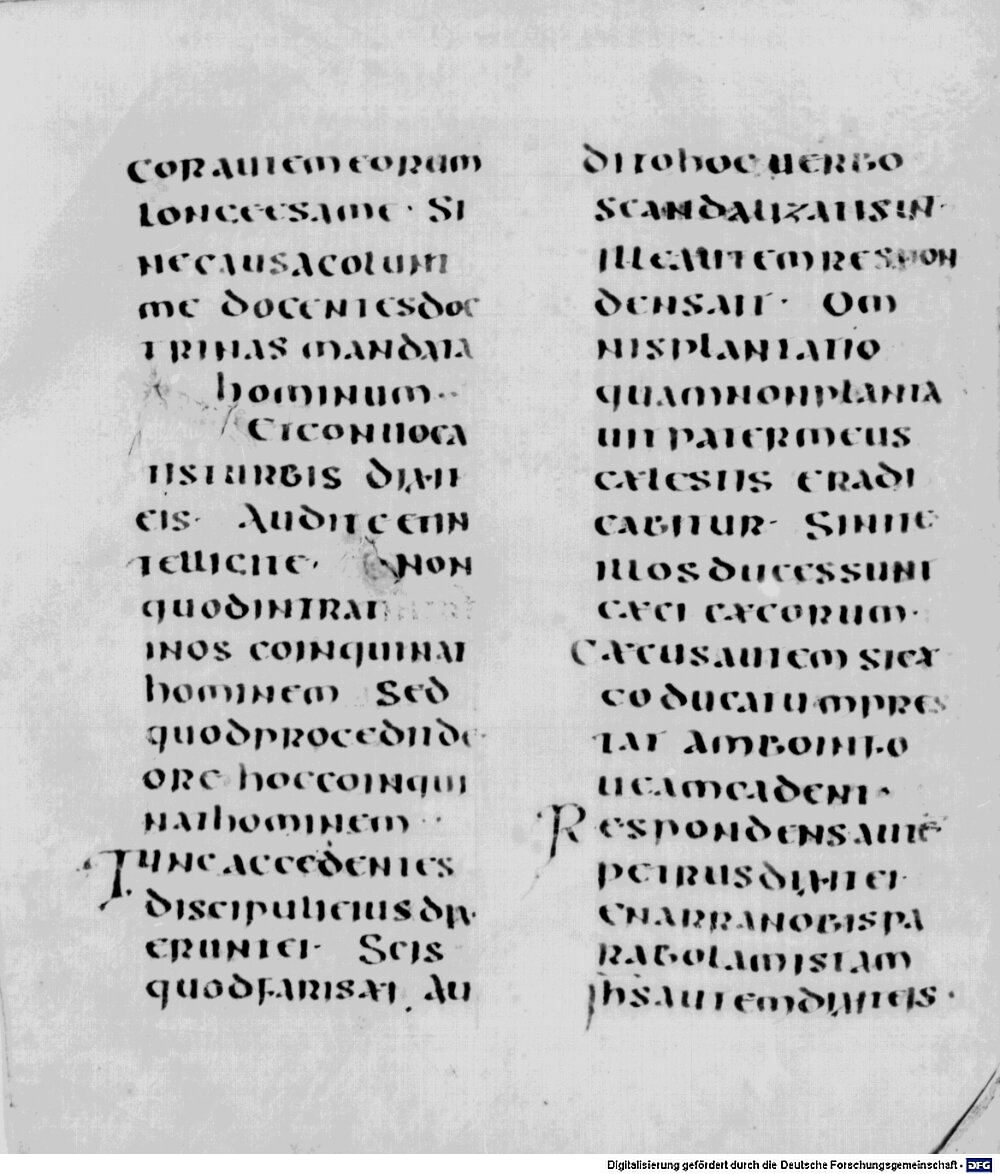 cor autem eorum
longe est ame · Si
ne causa colunt
me docentes doc
trinas mandata
hominum ·
Et conuoca
tis turbis dixit
eis · Audite et in
tellegite · Non
quod intrat
in os coinquinat
hominem Sed
quod procedit de
ore hoc coinqui
nat hominem ·
Tunc accedentes
discipuli eius dix
erunt ei · Scis
quod farisæi au
dito hoc uerbo
scandalizati sunt ·
ille autem respon
dens ait · Om
nis plantatio
quam non planta
uit pater meus
cælestis eradi
cabitur · Sinite
illos duces sunt
cæci cæcorum ·
Cæcus autem si cæ
co ducatum pres
tat ambo in fo
ueam cadent ·
Respondens aute
petrus dixit ei ·
enarra nobis pa
rabolam istam
Ihs autem dixit eis ·
Digitalisierung gefördert durch die Deutsche Forschungsgemeinschaft - DFG